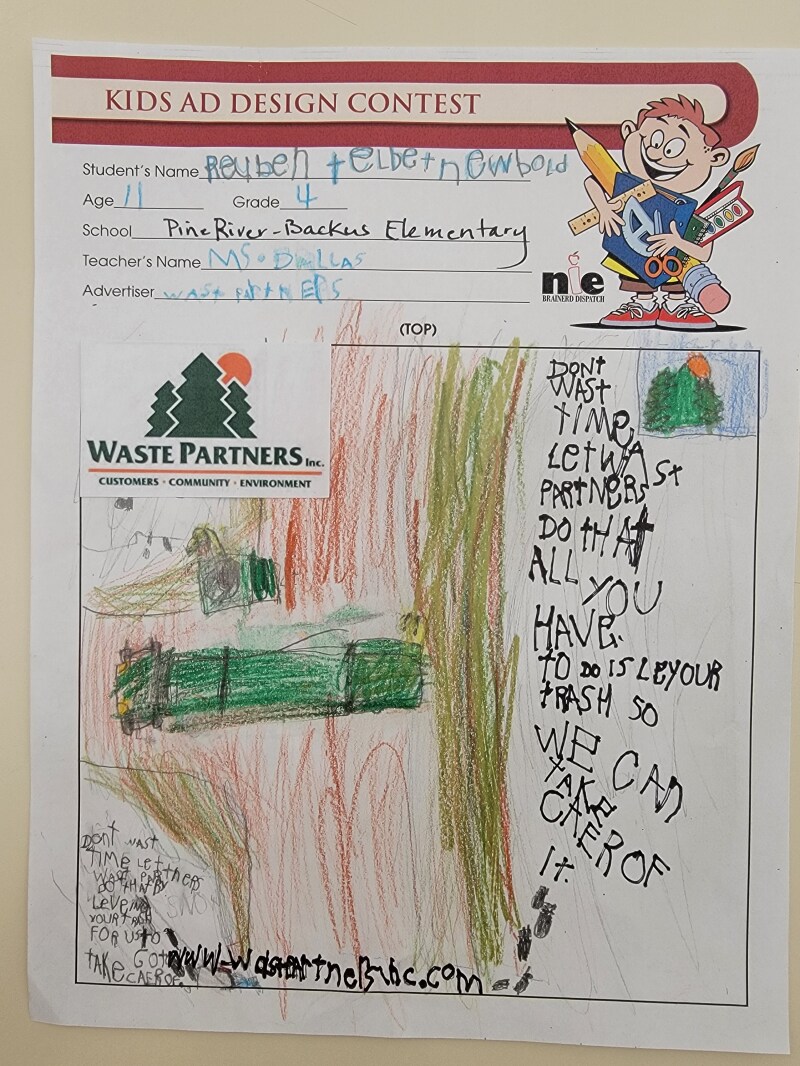 KIDS AD DESIGN CONTEST
Student's Name Reuben telbet newbold
Age 11 Grade 4
School Pine River-Backus Elementary
Teacher's Name MS. DALLAS
Advertiser WAST PARTNERS
nie
BRAINERD DISPATCH
(TOP)
WASTE PARTNERS Inc.
CUSTOMERS · COMMUNITY · ENVIRONMENT
DONt
WAST
TIME
LET WAST
PARTNERS
DO tHAt
ALL YOU
HAVE.
tO DO IS LEYOUR
tRASH SO
WE CAN
tAKE
CAEROF
It.
Dont WAST
TIME LET
WAST PARTNERS
DO tHAt BY
LEVEING
YOUR tASH
FOR US tO
tAKE CAEROF
www-wastpartnersinc.com